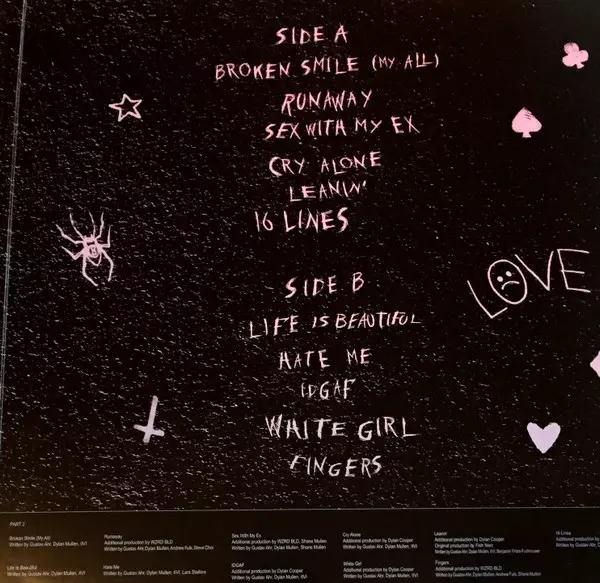 SIDE A
BROKEN SMILE (MY ALL)
RUNAWAY
SEX WITH MY EX
CRY ALONE
LEANIN'
16 LINES
SIDE B
LIFE IS BEAUTIFUL
HATE ME
IDGAF
WHITE GIRL
FINGERS
LOVE
PART 2
Broken Smile (My All)
Written by Gustav Ahr, Dylan Mullen, IIVI
Runaway
Additional production by WZRD BLD
Written by Gustav Ahr, Dylan Mullen, Andrew Fulk, Steve Choi
Sex With My Ex
Additional production by WZRD BLD, Shane Mullen
Written by Gustav Ahr, Dylan Mullen, Shane Mullen
Cry Alone
Additional production by Dylan Cooper
Written by Gustav Ahr, Dylan Mullen, IIVI
Leanin'
Additional production by Dylan Cooper
Original production by Fish Narc
Written by Gustav Ahr, Dylan Mullen, IIVI, Benjamin Friars-Funkhouser
16 Lines
Additional production by
Written by Gustav Ahr, D
Life Is Beautiful
Written by Gustav Ahr, Dylan Mullen, IIVI
Hate Me
Written by Gustav Ahr, Dylan Mullen, IIVI, Lars Stalfors
IDGAF
Additional production by Dylan Cooper
Written by Gustav Ahr, Dylan Mullen, IIVI
White Girl
Additional production by Dylan Cooper
Written by Gustav Ahr, Dylan Mullen, IIVI
Fingers
Additional production by WZRD BLD
Written by Gustav Ahr, Dylan Mullen, Andrew Fulk, Shane Mullen